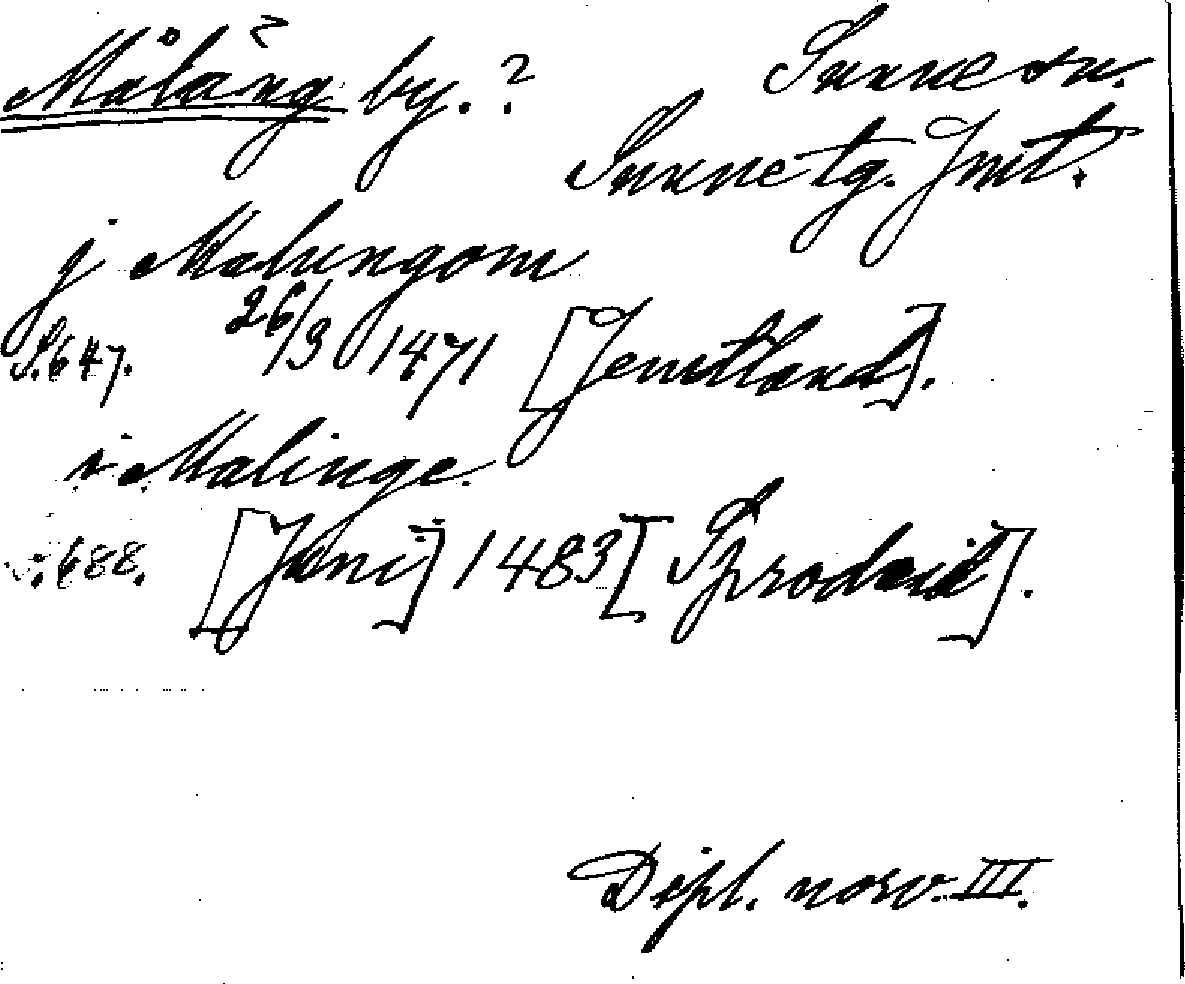 Målång by. ? Sunne sn.
Sunne tg. Jmt.
j Malungom
S. 647. 26/3 1471 [Jemtland].
i Malinge.
S. 688. [Juni] 1483 [
Dipl. norv. III.